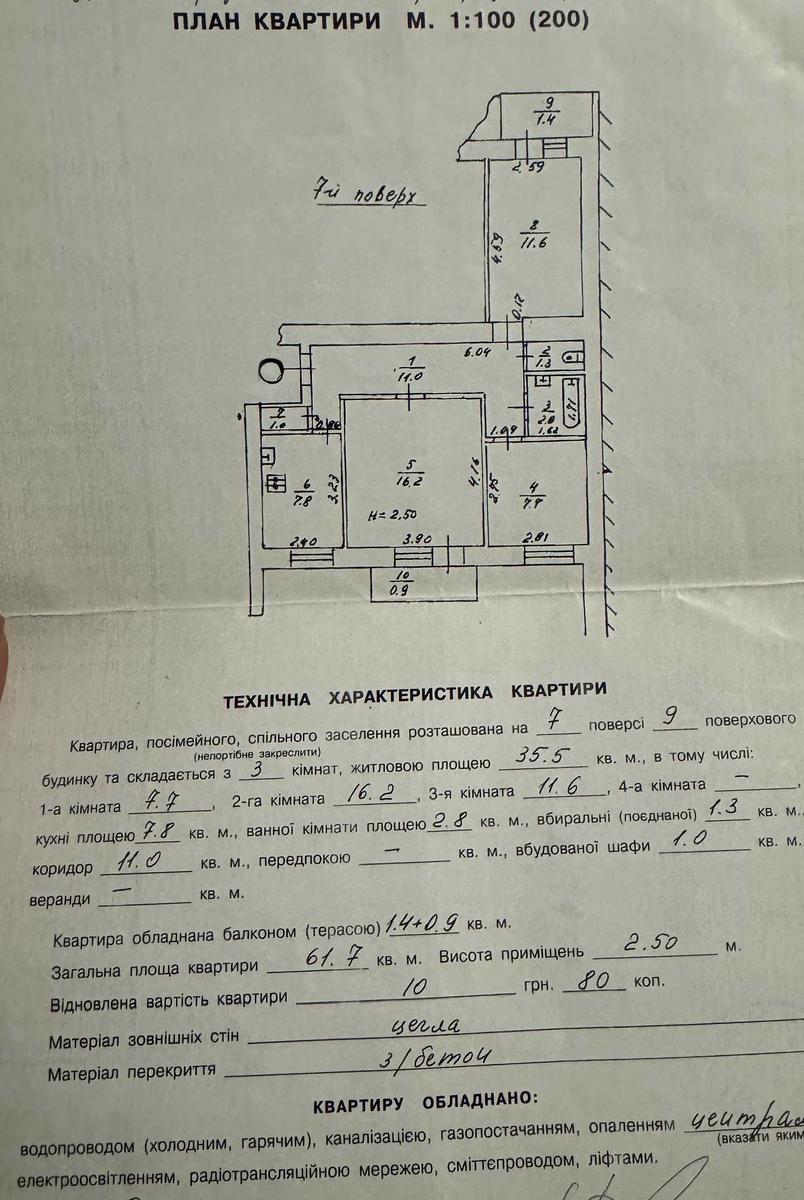 ПЛАН КВАРТИРИ М. 1:100 (200)
9
1.4
2.59
7-й поверх
8
11.6
4.59
0.12
6.04
1
11.0
2
1.3
3
2.8
1.71
1.62
7
1.0
1.09
5
16.2
4.16
H=2.50
3.90
6
7.8
3.23
2.40
4
7.7
2.81
10
0.9
ТЕХНІЧНА ХАРАКТЕРИСТИКА КВАРТИРИ
Квартира, посімейного, спільного заселення розташована на 7 поверсі 9 поверхового
(непотрібне закреслити)
будинку та складається з 3 кімнат, житловою площею 35.5 кв. м., в тому числі:
1-а кімната 7.7, 2-га кімната 16.2, 3-я кімната 11.6, 4-а кімната —,
кухні площею 7.8 кв. м., ванної кімнати площею 2.8 кв. м., вбиральні (поєднаної) 1.3 кв. м.,
коридор 11.0 кв. м., передпокою — кв. м., вбудованої шафи 1.0 кв. м.
веранди — кв. м.
Квартира обладнана балконом (терасою) 1.4+0.9 кв. м.
Загальна площа квартири 61.7 кв. м. Висота приміщень 2.50 м.
Відновлена вартість квартири 10 грн. 80 коп.
Матеріал зовнішніх стін цегла
Матеріал перекриття з/бетон
КВАРТИРУ ОБЛАДНАНО:
водопроводом (холодним, гарячим), каналізацією, газопостачанням, опаленням центра
(вказати яким
електроосвітленням, радіотрансляційною мережею, сміттєпроводом, ліфтами.